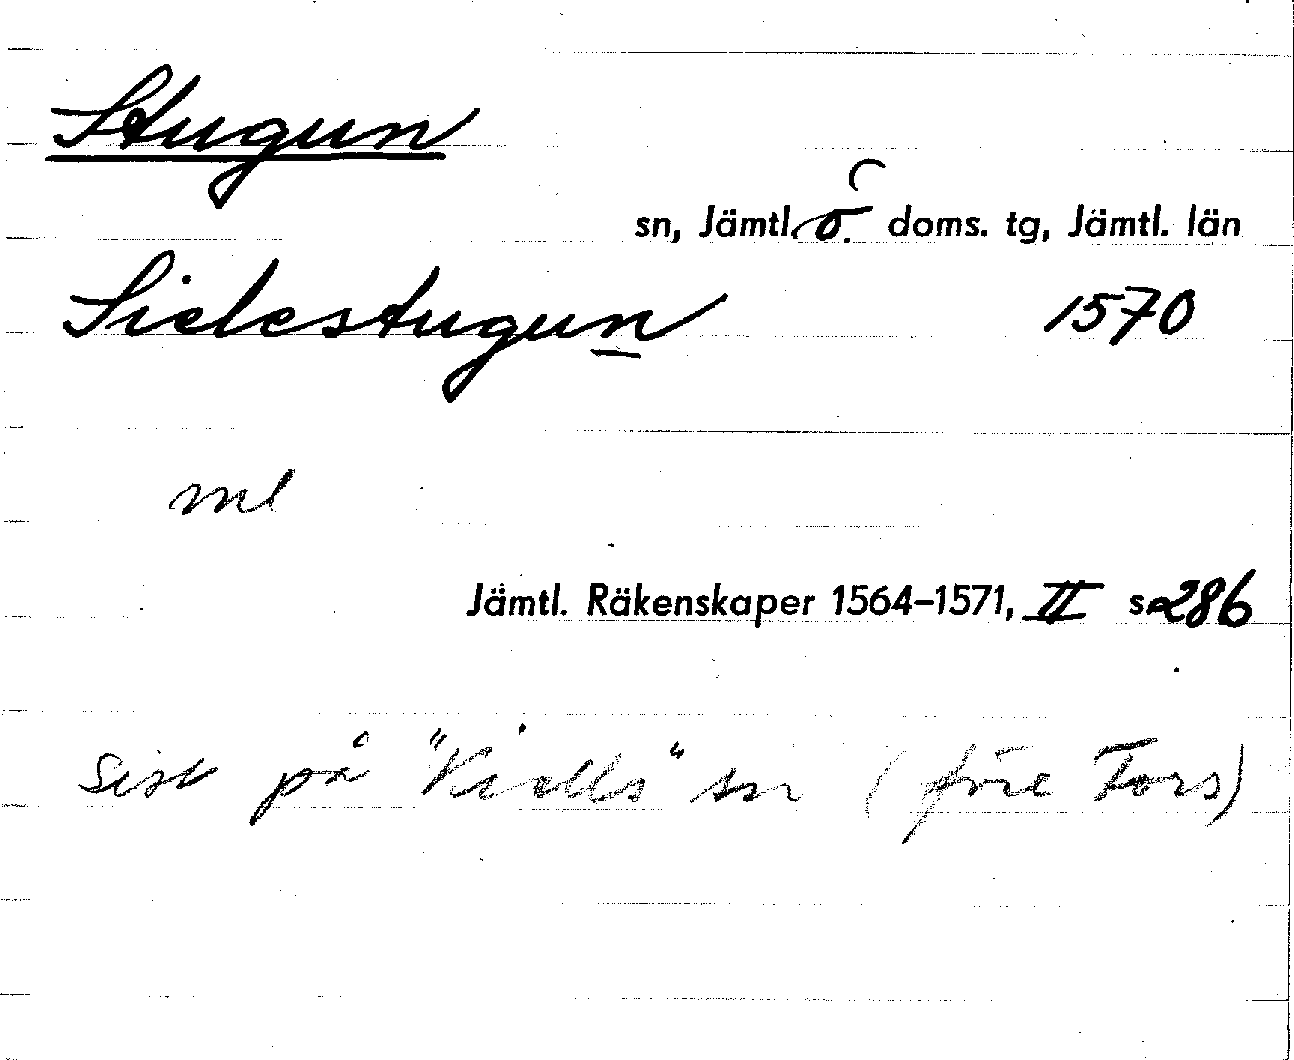 Stugun
sn, Jämtl. ö. doms. tg, Jämtl. län
Sielestugun 1570
ml
Jämtl. Räkenskaper 1564-1571, II s. 286
sist på "Kiells" sn (före Fors)